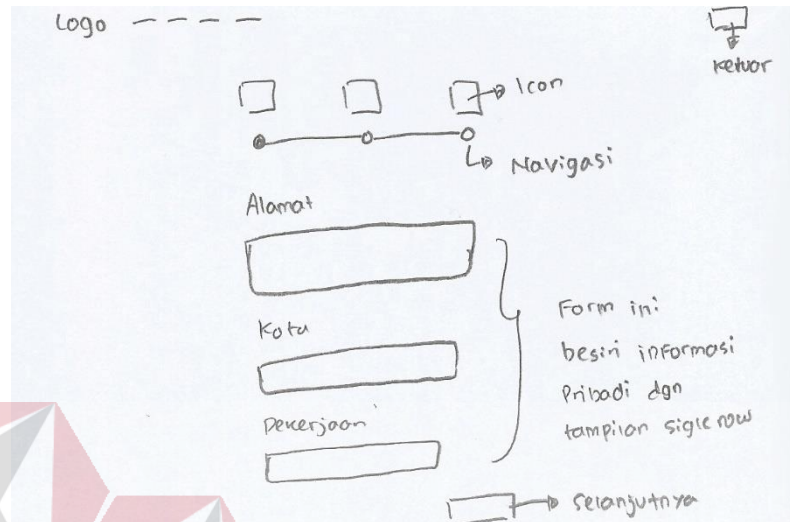 Logo
Keluar
Icon
Navigasi
Alamat
Kota
Pekerjaan
Form ini
besiri informasi
Pribadi dgn
tampilan sigle row
Selanjutnya